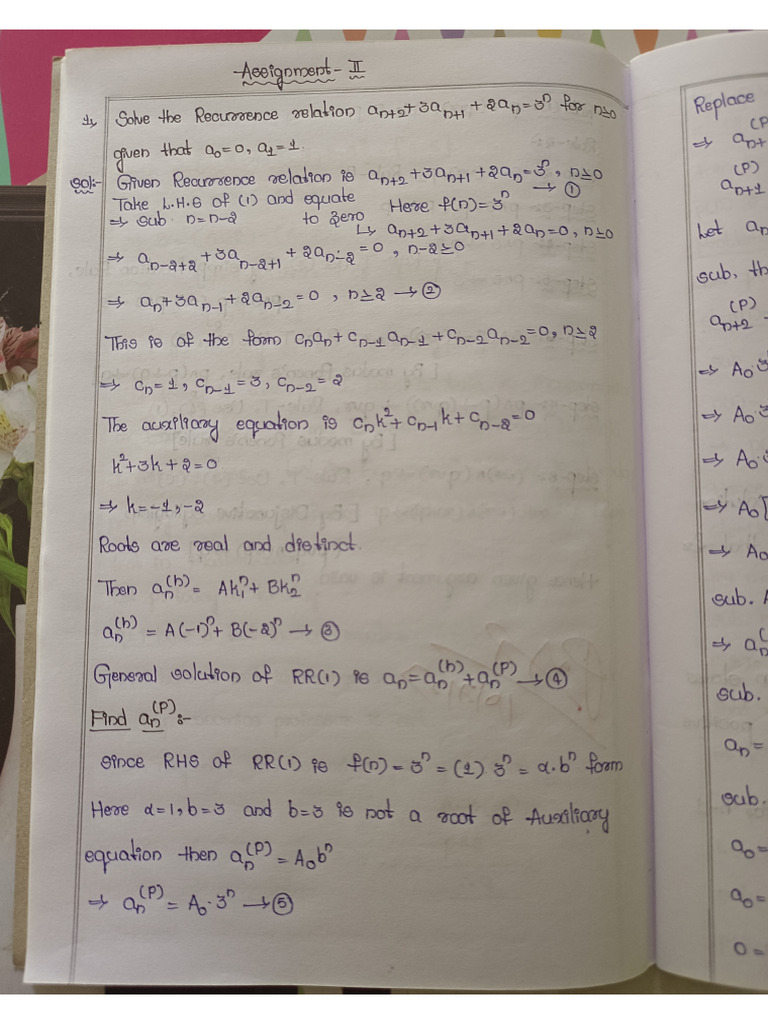 Assignment - II
1, Solve the Recurrence relation aₙ₊₂+3aₙ₊₁+2aₙ=3ⁿ for n≥0
given that a₀=0, a₁=1.
Sol:- Given Recurrence relation is aₙ₊₂+3aₙ₊₁+2aₙ=3ⁿ, n≥0 → ①
Take L.H.S of (1) and equate to zero Here f(n)=3ⁿ
⇒ sub n=n-2 ↳ aₙ₊₂+3aₙ₊₁+2aₙ=0, n≥0
⇒ aₙ₋₂₊₂+3aₙ₋₂₊₁+2aₙ₋₂=0, n-2≥0
⇒ aₙ+3aₙ₋₁+2aₙ₋₂=0, n≥2 → ②
This is of the form cₙaₙ+cₙ₋₁aₙ₋₁+cₙ₋₂aₙ₋₂=0, n≥2
⇒ cₙ=1, cₙ₋₁=3, cₙ₋₂=2
The auxiliary equation is cₙk²+cₙ₋₁k+cₙ₋₂=0
k²+3k+2=0
⇒ k=-1,-2
Roots are real and distinct.
Then aₙ⁽ʰ⁾= Ak₁ⁿ+Bk₂ⁿ
aₙ⁽ʰ⁾= A(-1)ⁿ+B(-2)ⁿ → ③
General solution of RR(1) is aₙ=aₙ⁽ʰ⁾+aₙ⁽ᴾ⁾ → ④
Find aₙ⁽ᴾ⁾:-
since RHS of RR(1) is f(n)=3ⁿ=(1).3ⁿ=α.bⁿ form
Here α=1, b=3 and b=3 is not a root of Auxiliary
equation then aₙ⁽ᴾ⁾=A₀bⁿ
⇒ aₙ⁽ᴾ⁾=A₀.3ⁿ → ⑤
Replace
⇒ aₙ₊
aₙ₊₁⁽ᴾ⁾
Let aₙ
sub. th
aₙ₊₂⁽ᴾ⁾
⇒ A₀.3
⇒ A₀.
⇒ A₀.
⇒ A₀[
⇒ A₀
sub. A
⇒ aₙ⁽
sub.
aₙ=
sub.
a₀=
a₀=
0=